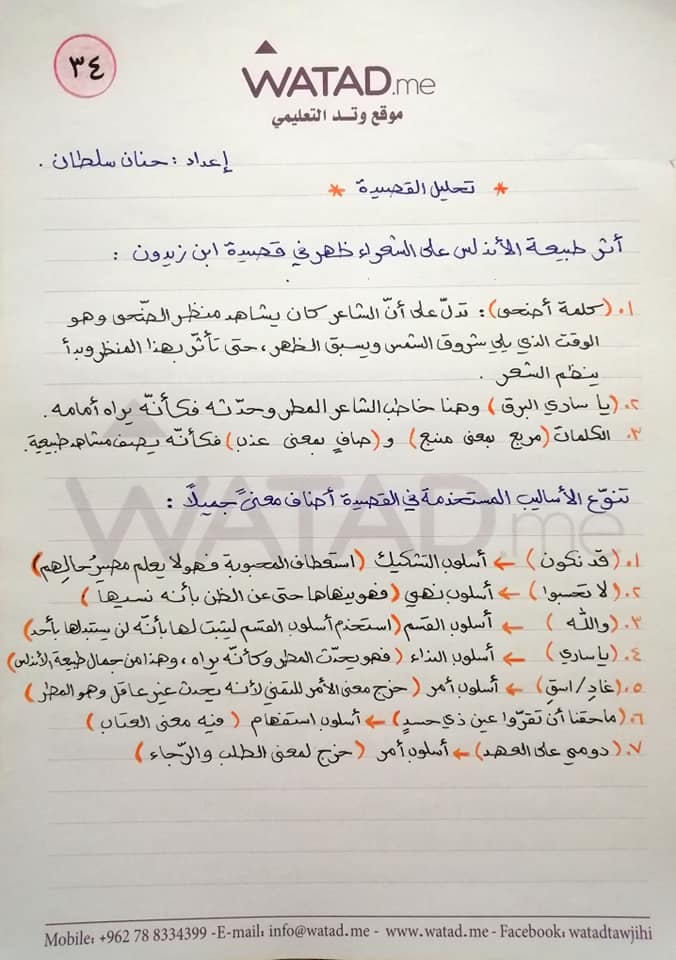 ٣٤
WATAD.me
موقع وتد التعليمي
إعداد : حنان سلطان .
* تحليل القصيدة *
أثر طبيعة الأندلس على الشعراء ظهر في قصيدة ابن زيدون :
١. (كلمة أضحى) : تدلّ على أنّ الشاعر كان يشاهد منظر الضّحى وهو
الوقت الذي يلي شروق الشمس ويسبق الظهر ، حتى تأثّر بهذا المنظر وبدأ
ينظم الشعر .
٢. (يا ساري البرق) وهنا خاطب الشاعر المطر وحدّثه فكأنّه يراه أمامه .
٣. الكلمات (مربع بمعنى منبع) و (صافٍ بمعنى عذب) فكأنّه يصف مشاهد طبيعية .
تنوّع الأساليب المستخدمة في القصيدة أضاف معنىً جميلًا :
١. (قد نكون) ← أسلوب التشكيك (استعطاف المحبوبة فهو لا يعلم مصير حالهم)
٢. (لا تحسبوا) ← أسلوب نهي (فهو ينهاها حتى عن الظن بأنه نسيها)
٣. (والله) ← أسلوب القسم (استخدم أسلوب القسم ليثبت لها بأنّه لن يستبدلها بأحد)
٤. (يا ساري) ← أسلوب النداء (فهو يحدّث المطر وكأنّه يراه ، وهذا من جمال طبيعة الأندلس)
٥. (غادِ/اسقِ) ← أسلوب أمر (خرج معنى الأمر للتمني لأنه يحدث غير عاقل وهو المطر)
٦. (ما حقنا أن تقرّوا عين ذي حسدٍ) ← أسلوب استفهام (فيه معنى العتاب)
٧. (دومي على العهد) ← أسلوب أمر (خرج لمعنى الطلب والرّجاء)
WATAD.me
Mobile: +962 78 8334399 -E-mail: info@watad.me - www.watad.me - Facebook: watadtawjihi